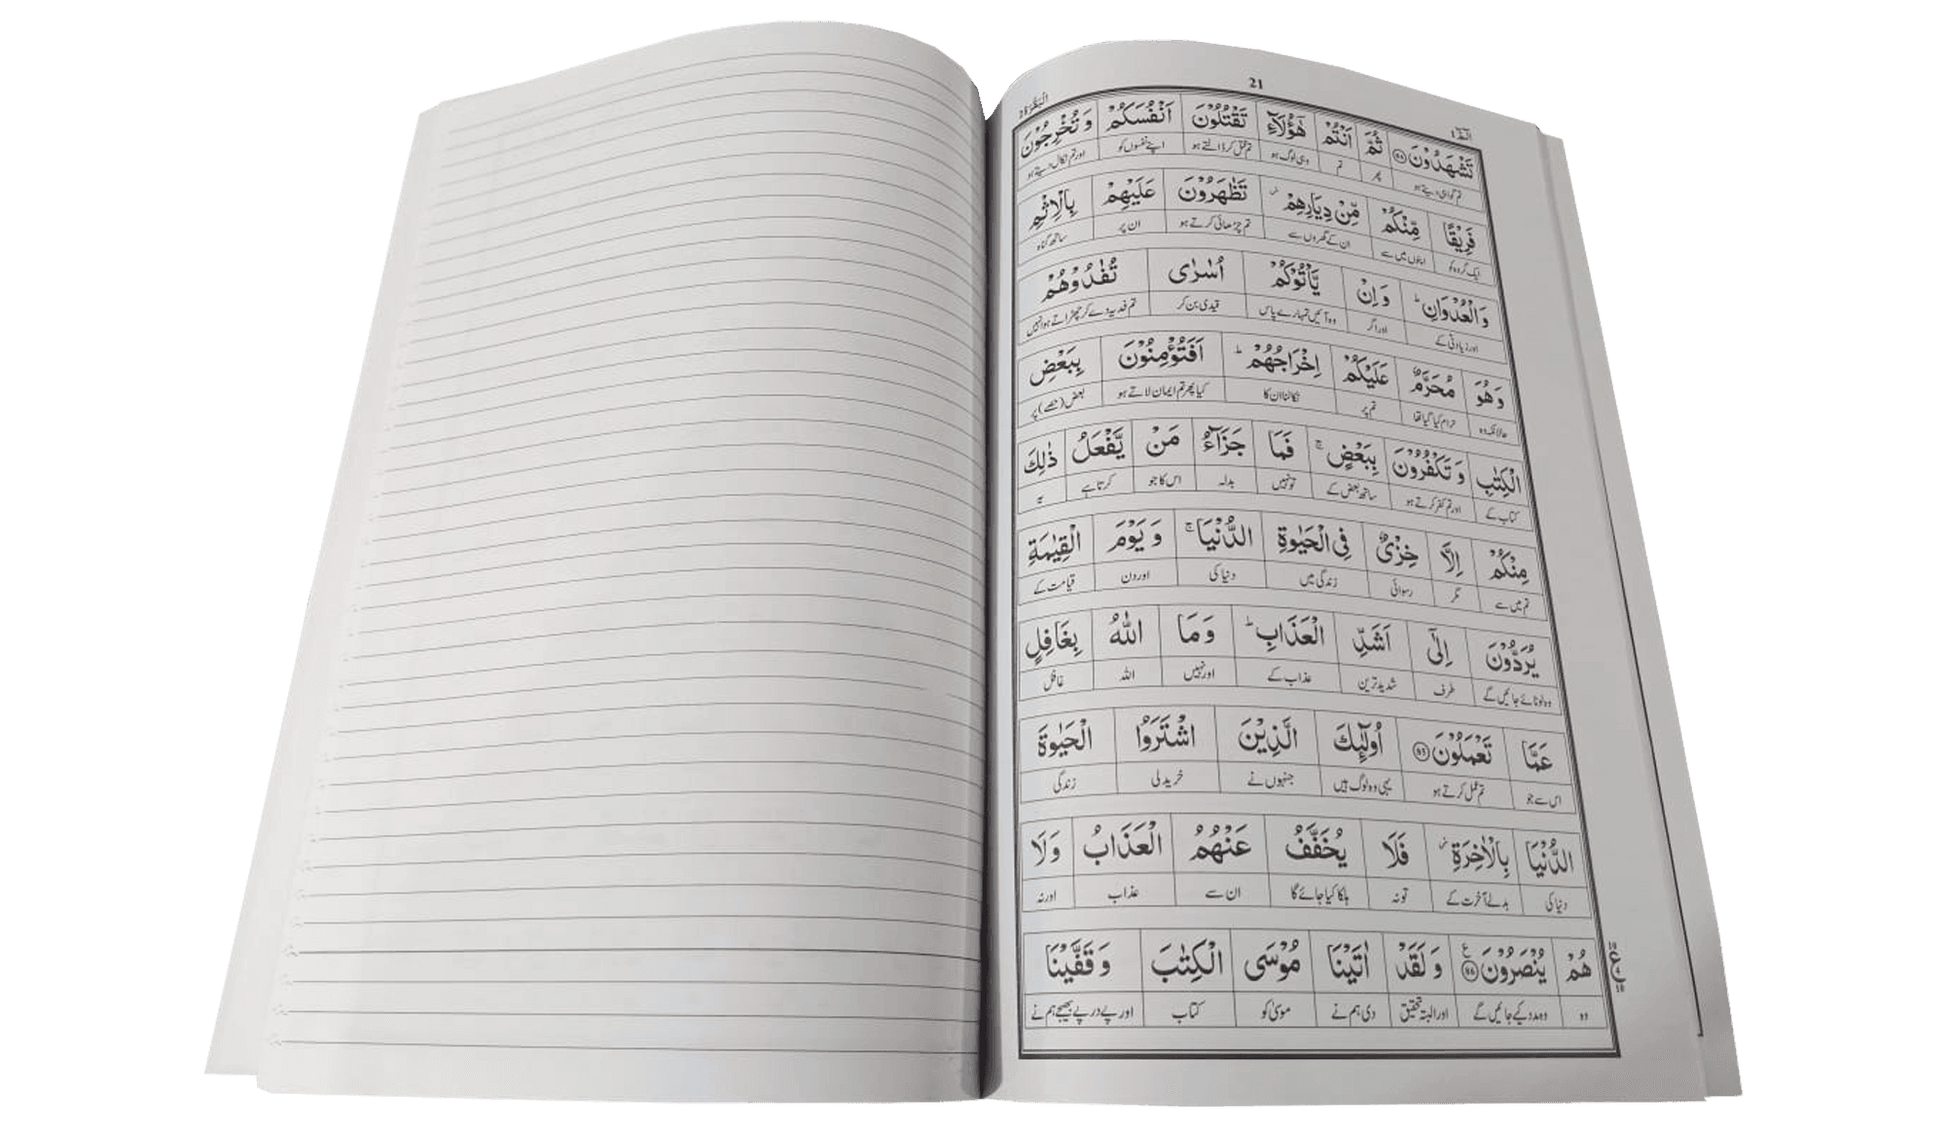 21
الٓمّٓ ١
اَلْبَقَرَة ٢
تَشْهَدُوْنَ ﴿٨٤﴾ ثُمَّ اَنْتُمْ هٰٓؤُلَآءِ تَقْتُلُوْنَ اَنْفُسَكُمْ وَ تُخْرِجُوْنَ
تم گواہی دیتے ہو پھر تم وہی لوگ ہو تم قتل کر ڈالتے ہو اپنے نفسوں کو اور تم نکال دیتے ہو
فَرِيْقًا مِّنْكُمْ مِّنْ دِيَارِهِمْ ؗ تَظٰهَرُوْنَ عَلَيْهِمْ بِالْاِثْمِ
ایک گروہ کو اپنوں میں سے ان کے گھروں سے تم چڑھائی کرتے ہو ان پر ساتھ گناہ
وَ الْعُدْوَانِ ؕ وَ اِنْ يَّاْتُوْكُمْ اُسٰرٰى تُفٰدُوْهُمْ
اور زیادتی کے اور اگر وہ آئیں تمہارے پاس قیدی بن کر تم فدیہ دے کر چھڑاتے ہو انہیں
وَ هُوَ مُحَرَّمٌ عَلَيْكُمْ اِخْرَاجُهُمْ ؕ اَفَتُؤْمِنُوْنَ بِبَعْضِ
حالانکہ وہ حرام کیا گیا تھا تم پر نکالنا ان کا کیا پھر تم ایمان لاتے ہو بعض (حصے) پر
الْكِتٰبِ وَ تَكْفُرُوْنَ بِبَعْضٍ ۚ فَمَا جَزَآءُ مَنْ يَّفْعَلُ ذٰلِكَ
کتاب کے اور تم کفر کرتے ہو ساتھ بعض کے تو نہیں بدلہ اس کا جو کرتا ہے یہ
مِنْكُمْ اِلَّا خِزْىٌ فِى الْحَيٰوةِ الدُّنْيَا ۚ وَ يَوْمَ الْقِيٰمَةِ
تم میں سے مگر رسوائی زندگی میں دنیا کی اور دن قیامت کے
يُرَدُّوْنَ اِلٰٓى اَشَدِّ الْعَذَابِ ؕ وَ مَا اللّٰهُ بِغَافِلٍ
وہ لوٹائے جائیں گے طرف شدید ترین عذاب کے اور نہیں اللہ غافل
عَمَّا تَعْمَلُوْنَ ﴿٨٥﴾ اُولٰٓئِكَ الَّذِيْنَ اشْتَرَوُا الْحَيٰوةَ
اس سے جو تم عمل کرتے ہو یہی وہ لوگ ہیں جنہوں نے خرید لی زندگی
الدُّنْيَا بِالْاٰخِرَةِ ؗ فَلَا يُخَفَّفُ عَنْهُمُ الْعَذَابُ وَ لَا
دنیا کی بدلے آخرت کے تو نہ ہلکا کیا جائے گا ان سے عذاب اور نہ
هُمْ يُنْصَرُوْنَ ﴿٨٦﴾ ع وَ لَقَدْ اٰتَيْنَا مُوْسَى الْكِتٰبَ وَ قَفَّيْنَا
وہ وہ مدد کیے جائیں گے اور البتہ تحقیق دی ہم نے موسیٰ کو کتاب اور پے در پے بھیجے ہم نے